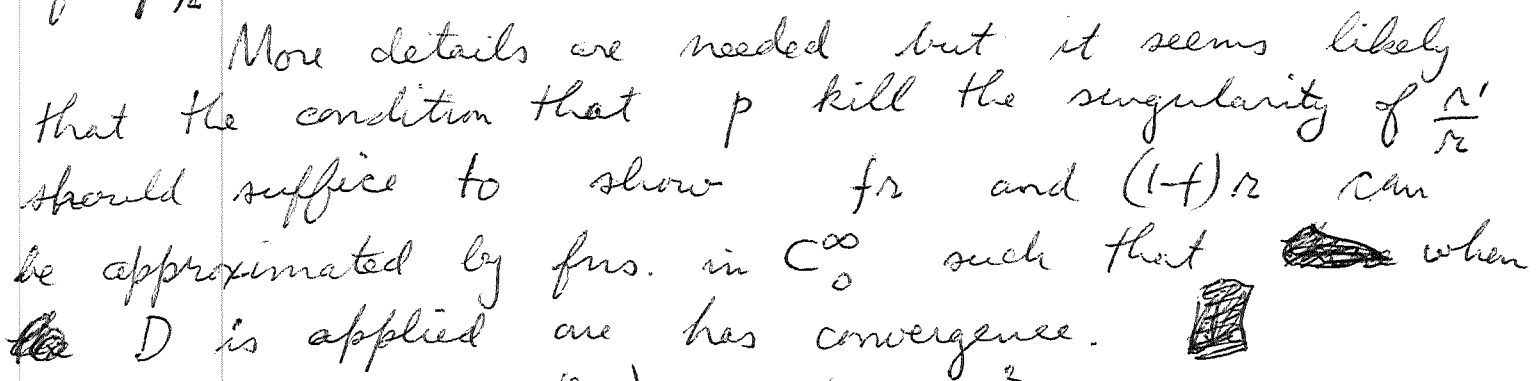 More details are needed but it seems likely
that the condition that p kill the singularity of r'/r
should suffice to show fr and (1-f)r can
be approximated by fns. in C₀^∞ such that when
D is applied one has convergence.